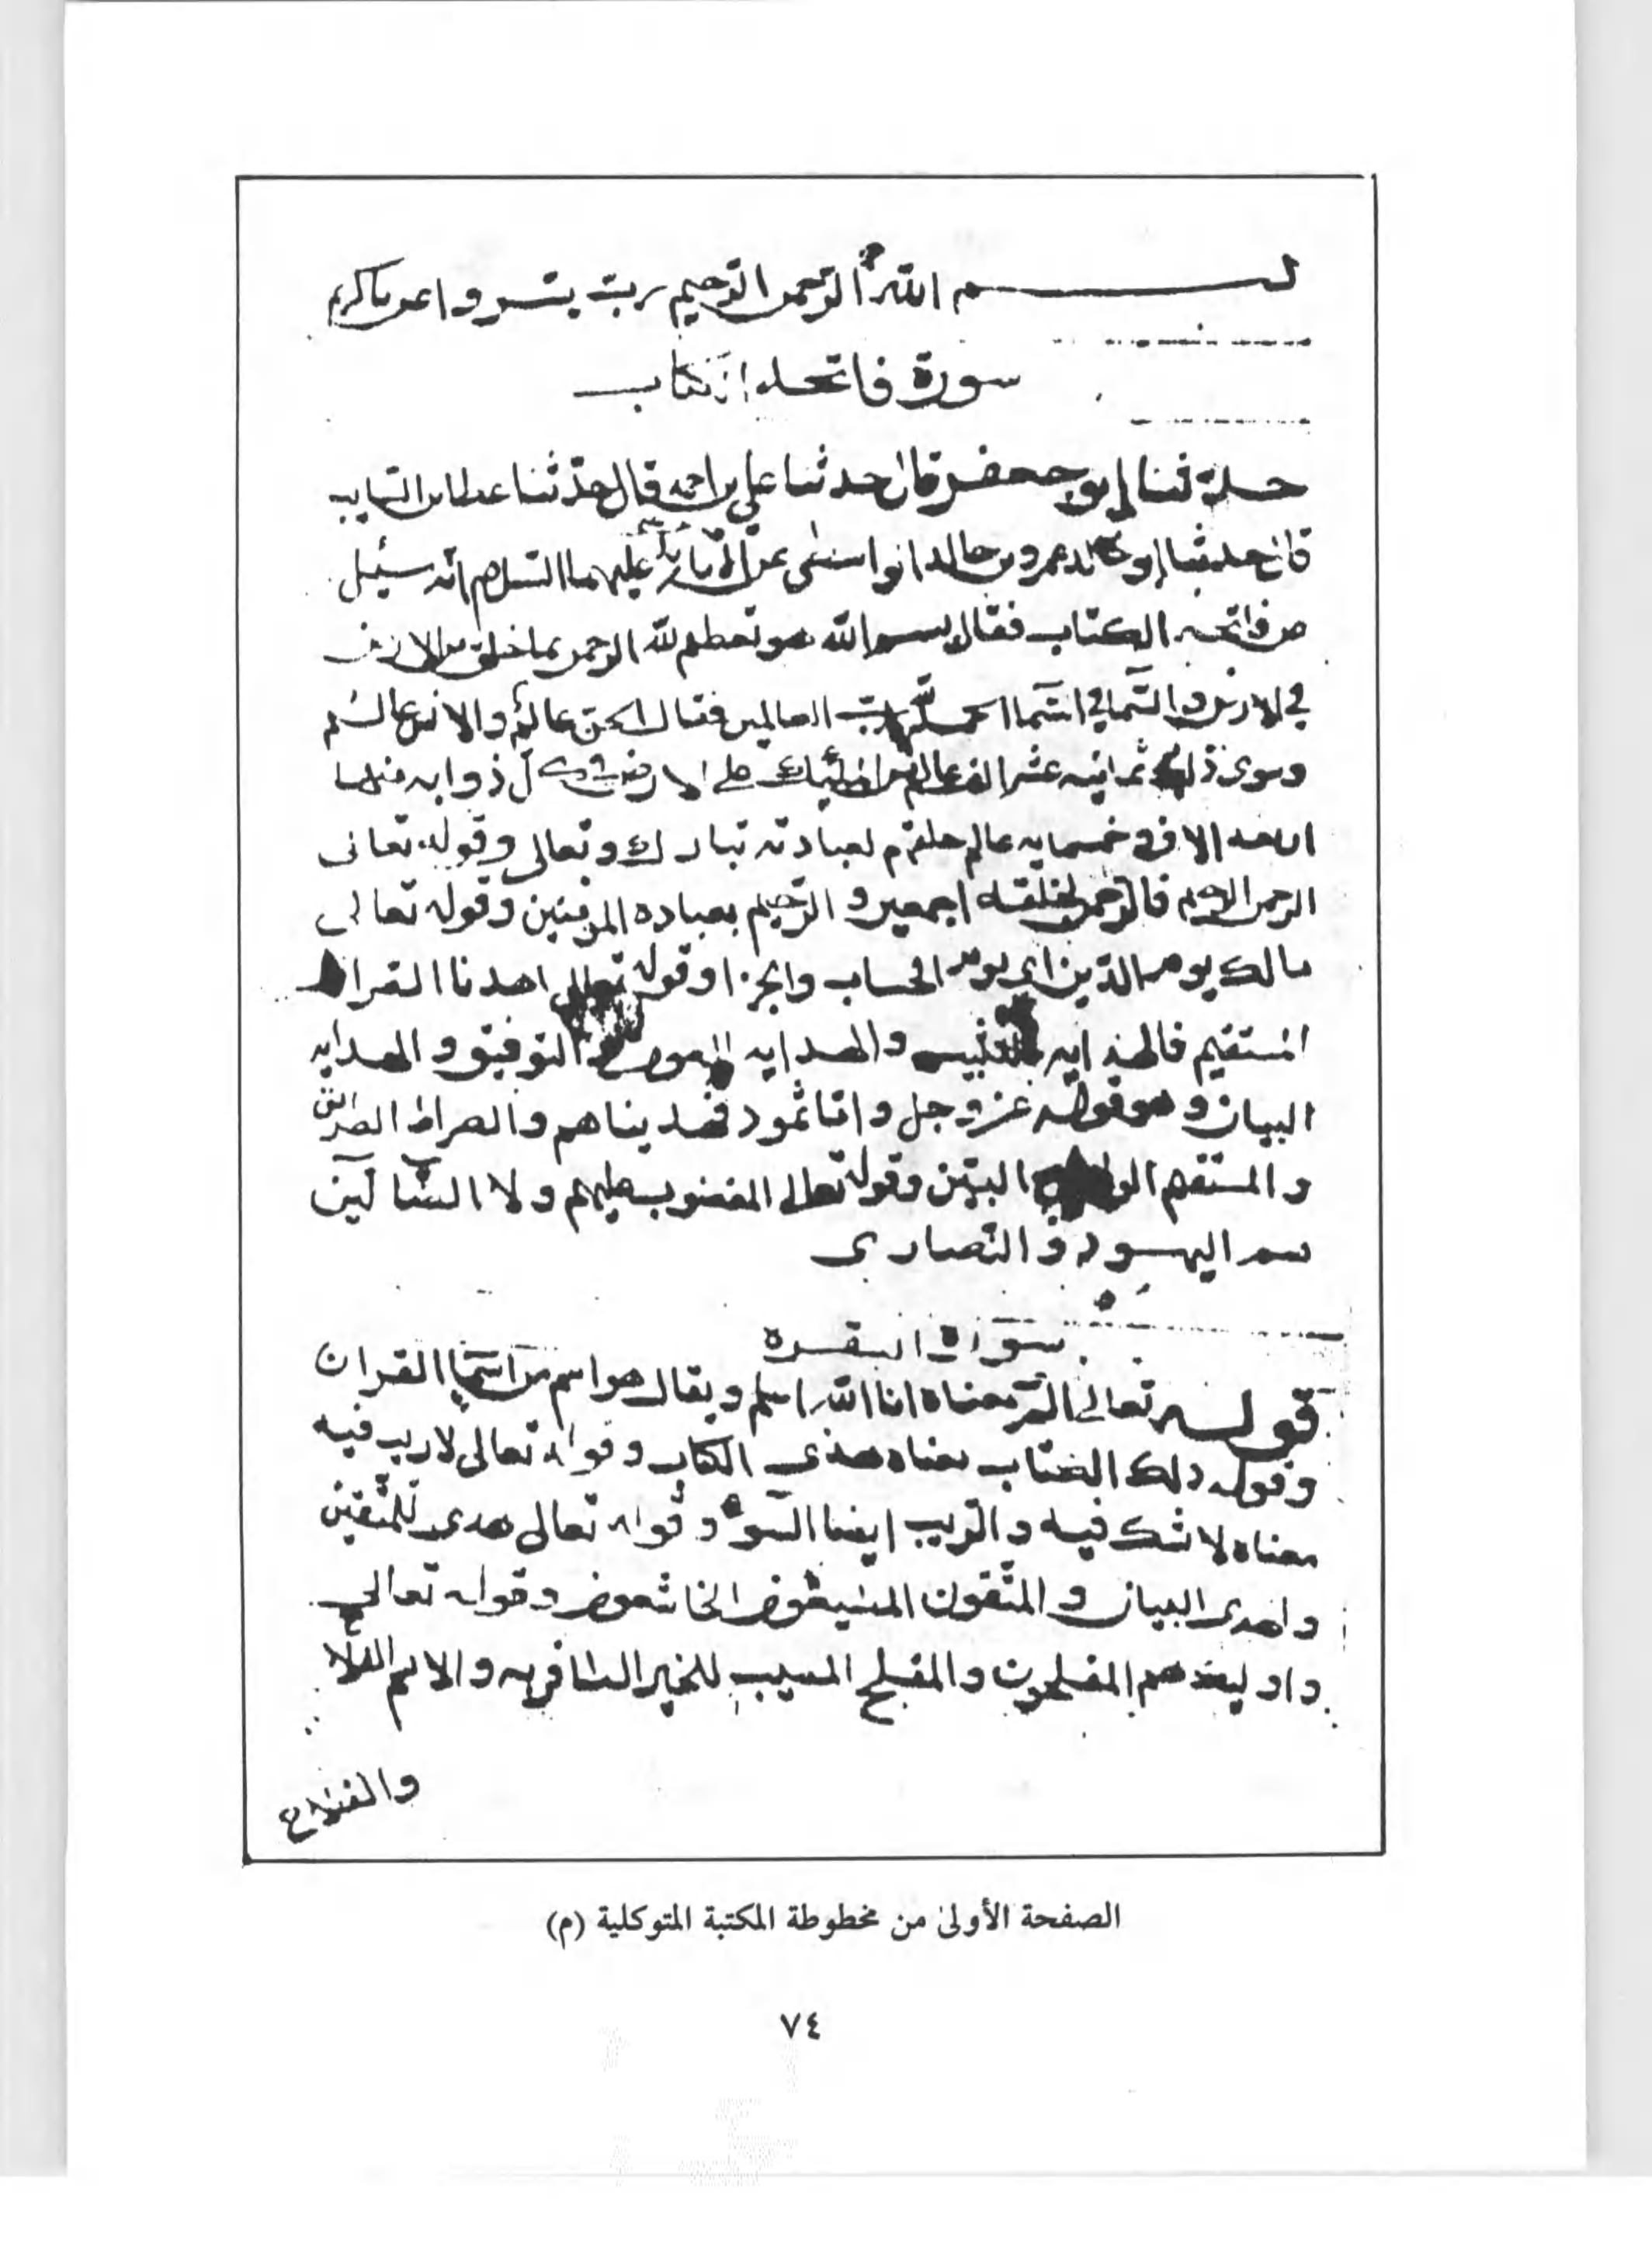 بسم الله الرحمن الرحيم رب يسر واعن ياكريم
سورة فاتحة الكتاب
حدثنا ابو جعفر قال حدثنا علي بن احمد قال حدثنا عطا بن السايب
قال حدثنا ابو خالد عمرو بن خالد الواسطى عن عليهما السلام انه سئل
عن فاتحه الكتاب فقال بسم الله هو تعظيم لله الرحمن بما خلق من الارض
في الارض و السما في السما الحمد لله رب العالمين فقال الجن عالم والانس عالم
وسوى ذلك ثمانيه عشر الف عالم من الملئيكة على الارض في كل ذوايه منها
اربعه الاف وخمسمايه عالم خلقهم لعبادته تبارك وتعالى وقوله تعالى
الرحمن الرحيم فالرحمن بخلقه اجمعين و الرحيم بعباده المومنين وقوله تعالى
مالك يوم الدين اى يوم الحساب والجزا وقوله تعالى اهدنا الصراط
المستقيم فالهدايه والهدايه التوفيق و الهدايه
البيان وهو قوله عز وجل واما ثمود فهديناهم والصراط الطريق
و المستقيم البين وقوله تعالى المغضوب عليهم ولا الضآلين
هم اليهود والنصارى
سورة البقره
قوله تعالى الم معناه انا الله اعلم ويقال هو اسم من اسما القران
وقوله ذلك الكتاب معناه هذى الكتاب وقوله تعالى لاريب فيه
معناه لاشك فيه والريب ايضا السوء وقوله تعالى هدى للمتقين
والهدى البيان و المتقون الخاشعون وقوله تعالى
واوليك هم المفلحون والمفلح المصيب للخير الظافر به والاسم الفلاح
والفلاح
الصفحة الأولى من مخطوطة المكتبة المتوكلية (م)
٧٤